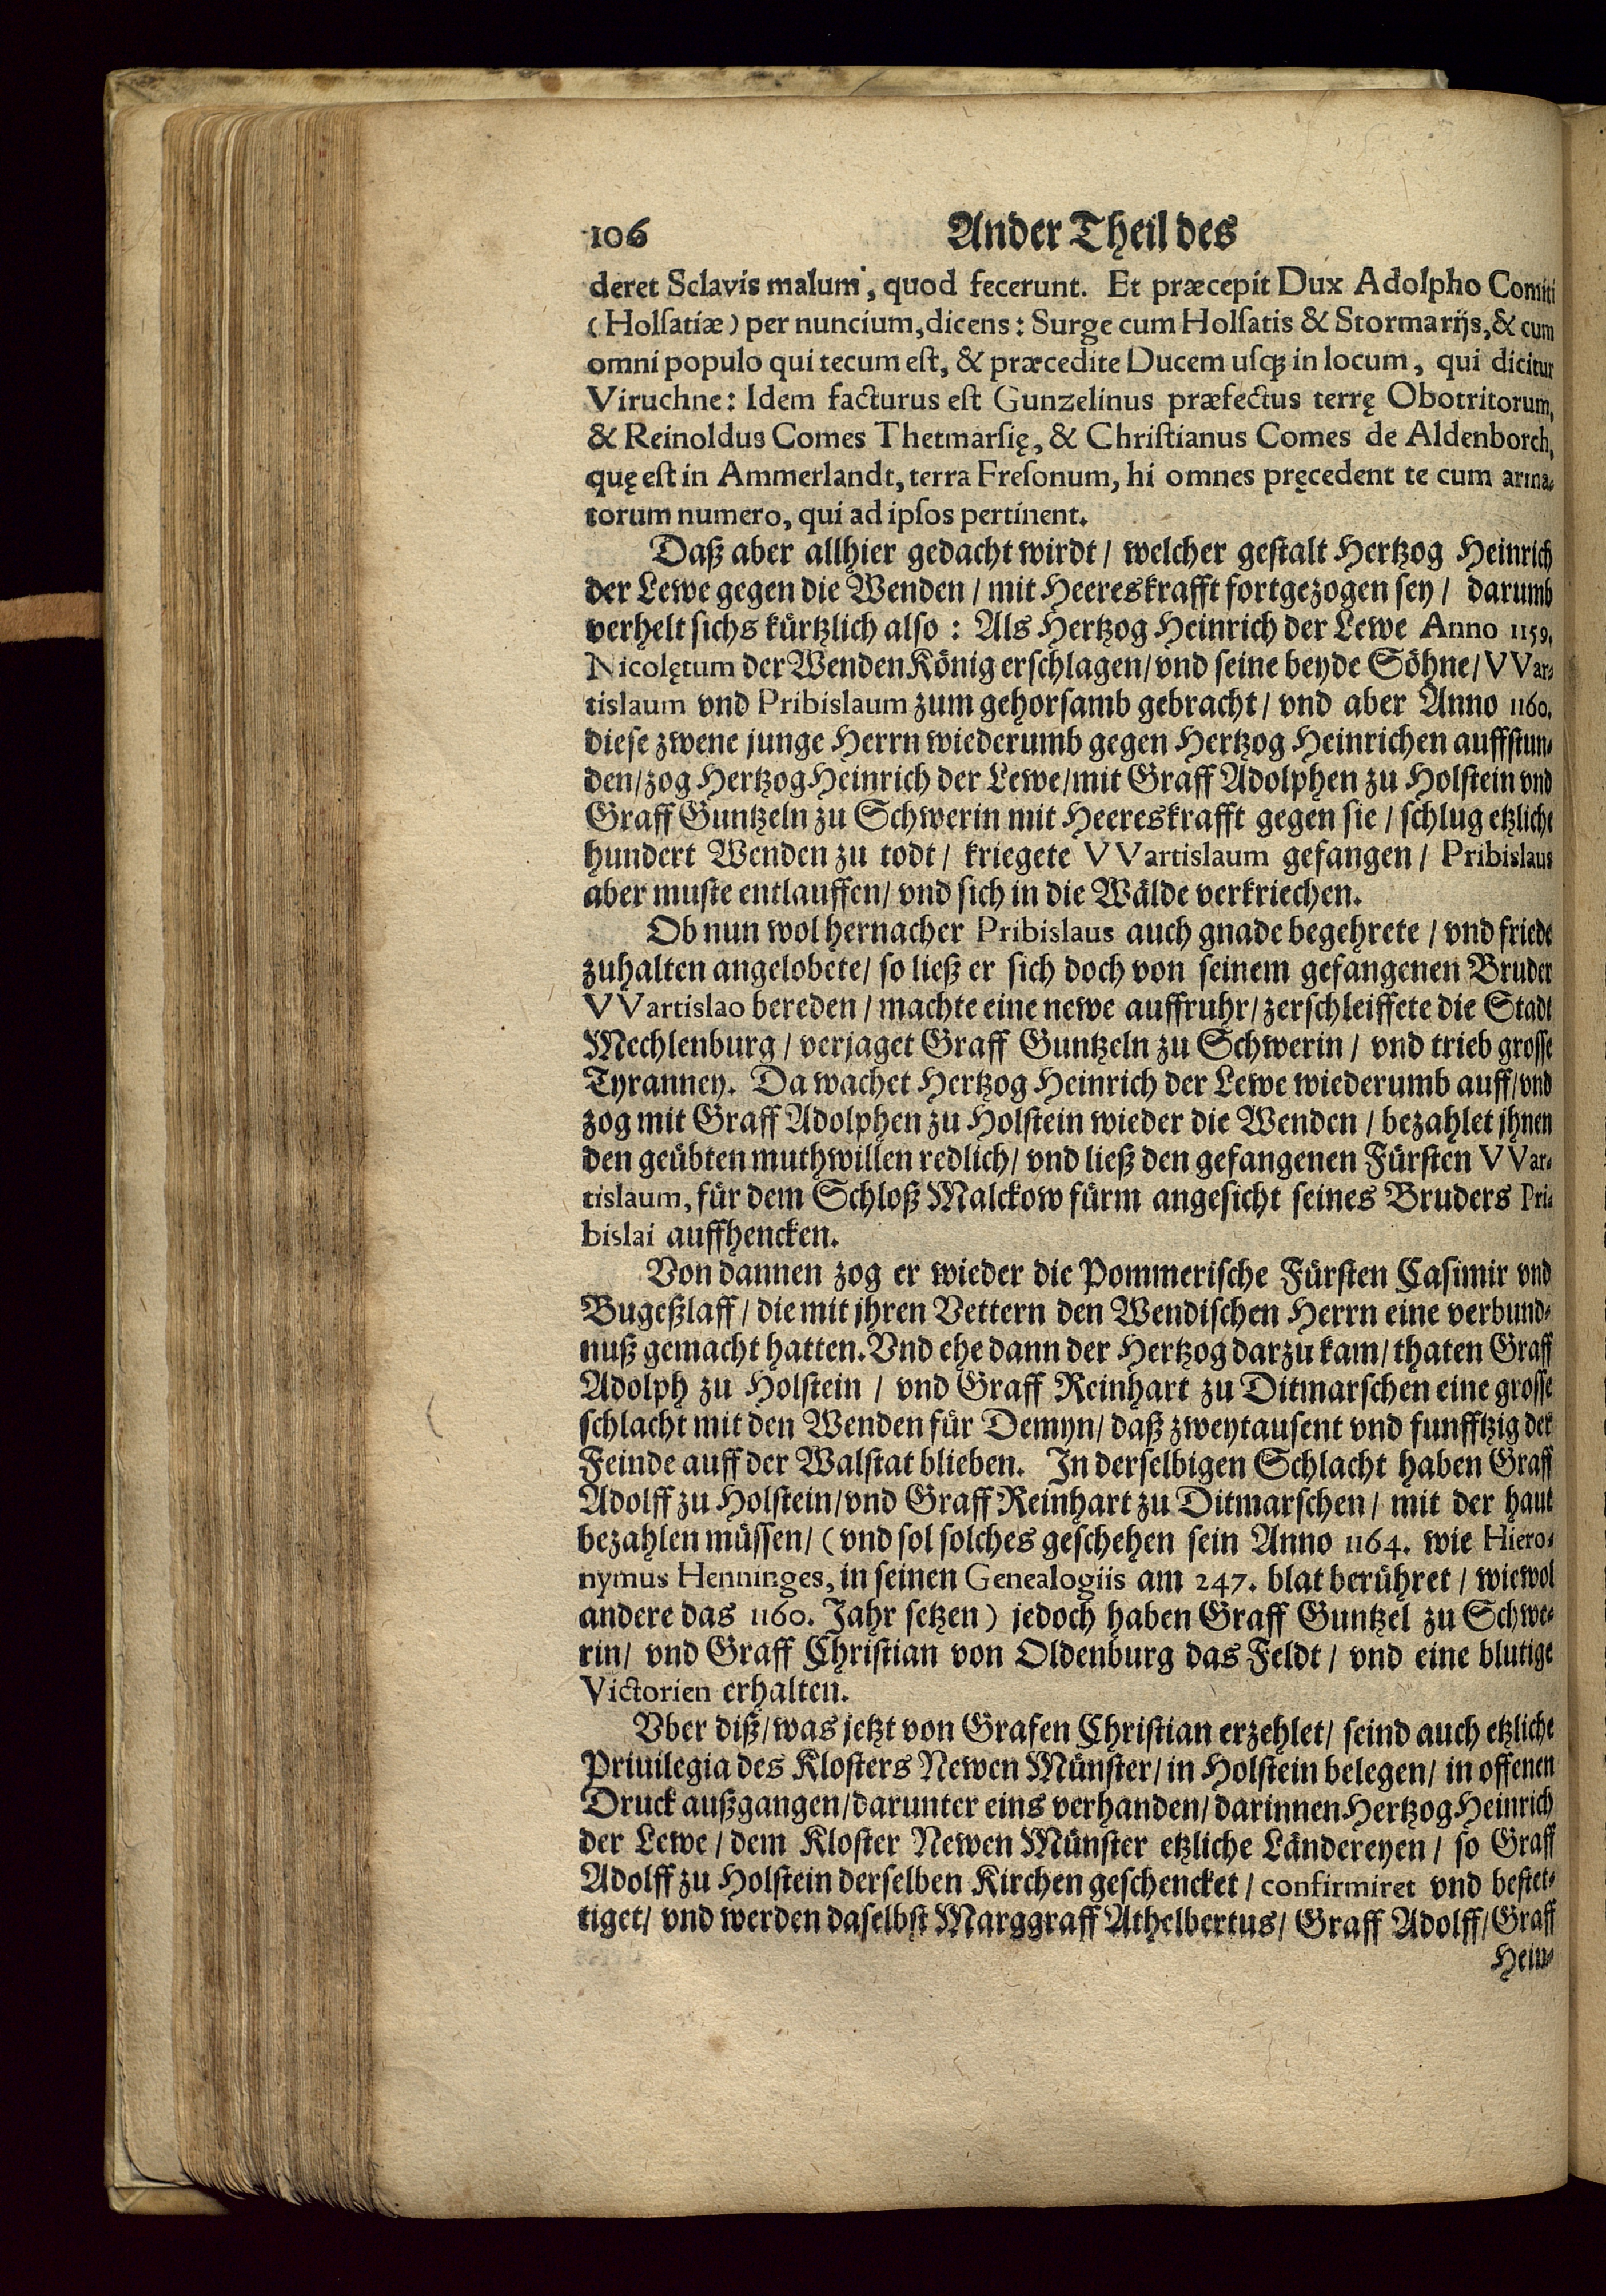 106 Ander Theil des
deret Sclavis malum, quod fecerunt. Et præcepit Dux Adolpho Comiti
(Holsatiæ) per nuncium, dicens: Surge cum Holsatis & Stormarijs, & cum
omni populo qui tecum est, & præcedite Ducem usq; in locum, qui dicitur
Viruchne: Idem facturus est Gunzelinus præfectus terrę Obotritorum,
& Reinoldus Comes Thetmarsię, & Christianus Comes de Aldenborch,
quę est in Ammerlandt, terra Fresonum, hi omnes pręcedent te cum arma-
torum numero, qui ad ipsos pertinent.
Daß aber allhier gedacht wirdt / welcher gestalt Hertzog Heinrich
der Lewe gegen die Wenden / mit Heereskrafft fortgezogen sey / darumb
verhelt sichs kürtzlich also: Als Hertzog Heinrich der Lewe Anno 1159.
Nicolętum der Wenden König erschlagen / vnd seine beyde Söhne / VVar-
tislaum vnd Pribislaum zum gehorsamb gebracht / vnd aber Anno 1160.
diese zwene junge Herrn wiederumb gegen Hertzog Heinrichen auffstun-
den / zog Hertzog Heinrich der Lewe / mit Graff Adolphen zu Holstein vnd
Graff Guntzeln zu Schwerin mit Heereskrafft gegen sie / schlug etzliche
hundert Wenden zu todt / kriegete VVartislaum gefangen / Pribislaus
aber muste entlauffen / vnd sich in die Wälde verkriechen.
Ob nun wol hernacher Pribislaus auch gnade begehrete / vnd friede
zuhalten angelobete / so ließ er sich doch von seinem gefangenen Bruder
VVartislao bereden / machte eine newe auffruhr / zerschleiffete die Stadt
Mechlenburg / verjaget Graff Guntzeln zu Schwerin / vnd trieb grosse
Tyranney. Da wachet Hertzog Heinrich der Lewe wiederumb auff / vnd
zog mit Graff Adolphen zu Holstein wieder die Wenden / bezahlet jhnen
den geübten muthwillen redlich / vnd ließ den gefangenen Fürsten VVar-
tislaum, für dem Schloß Malckow fürm angesicht seines Bruders Pri-
bislai auffhencken.
Von dannen zog er wieder die Pommerische Fürsten Casimir vnd
Bugeßlaff / die mit jhren Vettern den Wendischen Herrn eine verbund-
nuß gemacht hatten. Vnd ehe dann der Hertzog darzu kam / thaten Graff
Adolph zu Holstein / vnd Graff Reinhart zu Ditmarschen eine grosse
schlacht mit den Wenden für Demyn / daß zweytausent vnd funfftzig der
Feinde auff der Walstat blieben. In derselbigen Schlacht haben Graff
Adolff zu Holstein / vnd Graff Reinhart zu Ditmarschen / mit der haut
bezahlen müssen / (vnd sol solches geschehen sein Anno 1164. wie Hiero-
nymus Henninges, in seinen Genealogiis am 247. blat berühret / wiewol
andere das 1160. Jahr setzen) jedoch haben Graff Guntzel zu Schwe-
rin / vnd Graff Christian von Oldenburg das Feldt / vnd eine blutige
Victorien erhalten.
Vber diß / was jetzt von Grafen Christian erzehlet / seind auch etzliche
Priuilegia des Klosters Newen Münster / in Holstein belegen / in offenen
Druck außgangen / darunter eins verhanden / darinnen Hertzog Heinrich
der Lewe / dem Kloster Newen Münster etzliche Ländereyen / so Graff
Adolff zu Holstein derselben Kirchen geschencket / confirmiret vnd bestet-
tiget / vnd werden daselbst Marggraff Athelbertus / Graff Adolff / Graff
Hein-